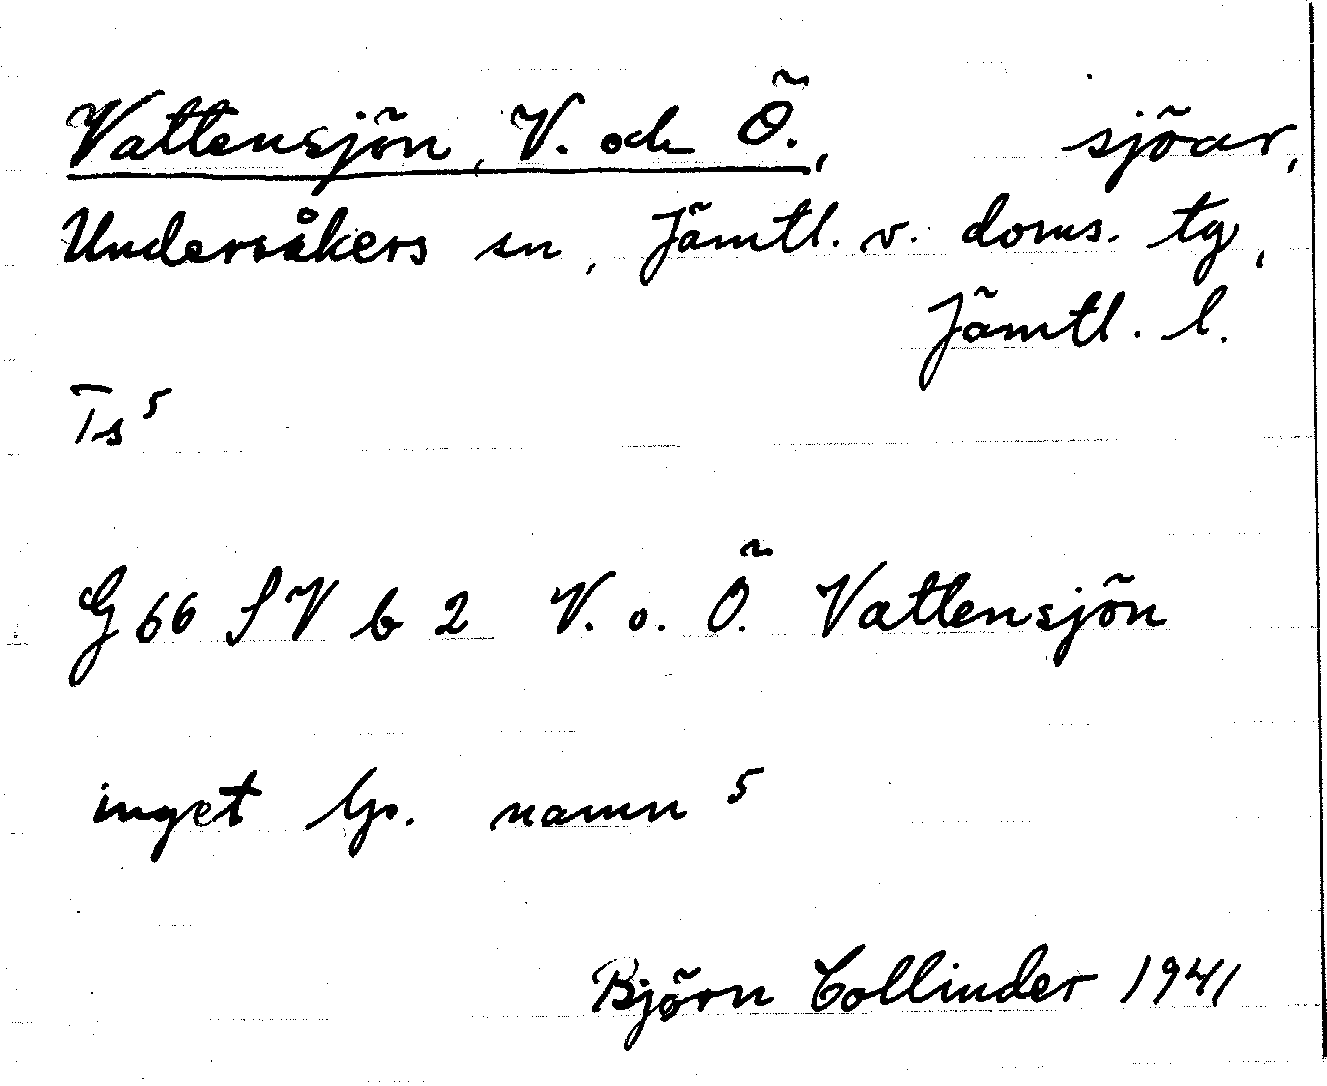 Vattensjön, V. och Ö., sjöar,
Undersåkers sn, Jämtl. v. doms. tg,
Jämtl. l.
Ts 5
G 66 SV b 2 V. o. Ö. Vattensjön
inget lp. namn 5
Björn Collinder 1941